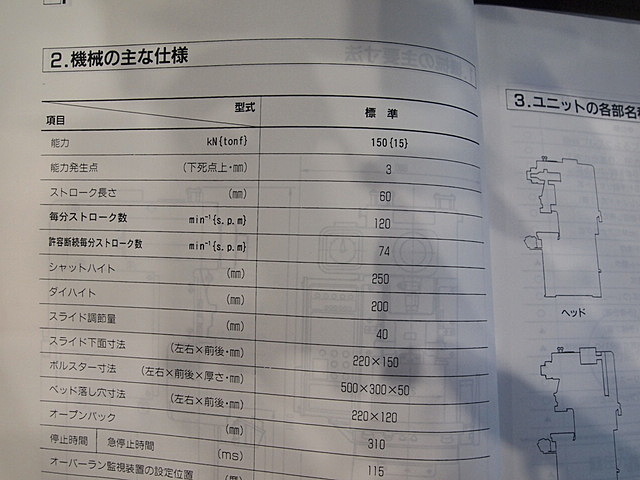 2.機械の主な仕様
項目 型式 標準
能力 kN{tonf} 150{15}
能力発生点 (下死点上・mm) 3
ストローク長さ (mm) 60
毎分ストローク数 min⁻¹{s.p.m} 120
許容断続毎分ストローク数 min⁻¹{s.p.m} 74
シャットハイト (mm) 250
ダイハイト (mm) 200
スライド調節量 (mm) 40
スライド下面寸法 (左右×前後・mm) 220×150
ボルスター寸法 (左右×前後×厚さ・mm) 500×300×50
ベッド落し穴寸法 (左右×前後・mm) 220×120
オープンバック (mm) 310
停止時間 急停止時間 (ms) 115
オーバーラン監視装置の設定位置
3.ユニットの各部名
ヘッド